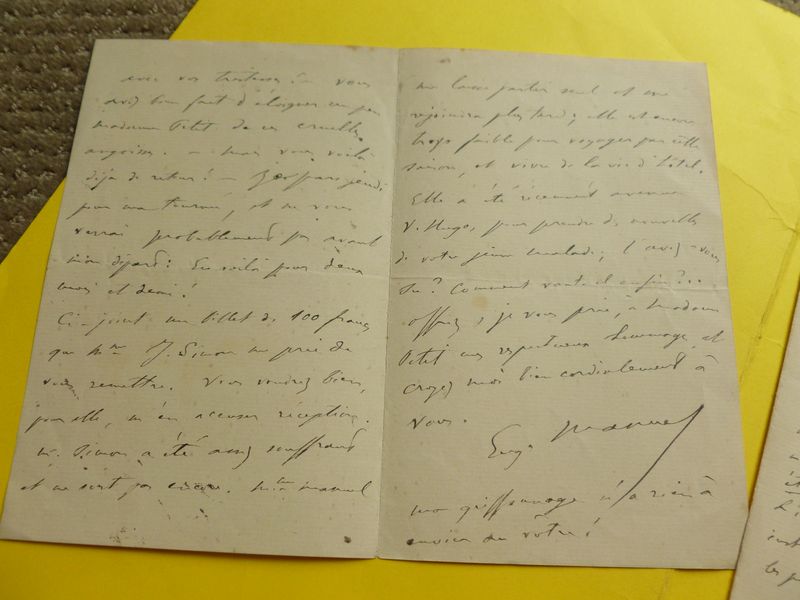 avec vos tristesses ! — vous
avez bien fait d'éloigner un peu
madame Petit de ces cruelles
angoisses. — mais vous voilà
déjà de retour ! — Je pars jeudi
pour ma tournée, et ne vous
verrai probablement pas avant
mon départ : En voilà pour deux
mois et demi !
Ci-joint un billet de 100 francs
que Mme J. Simon me prie de
vous remettre. Vous voudrez bien,
pour elle, m'en accuser réception.
M. Simon a été assez souffrant
et ne sort pas encore. Mme Manuel
me laisse partir seul et me
rejoindra plus tard ; elle est encore
trop faible pour voyager par cette
saison, et vivre de la vie d'hôtel.
Elle a été récemment avenue
V. Hugo, pour prendre des nouvelles
de votre jeune malade ; l'avez-vous
su ? Comment va-t-il enfin ?
Offrez, je vous prie, à Madame
Petit mes respectueux hommages, et
croyez moi bien cordialement à
vous.
Eug. Manuel
mon griffonnage n'a rien à
envier au vôtre !